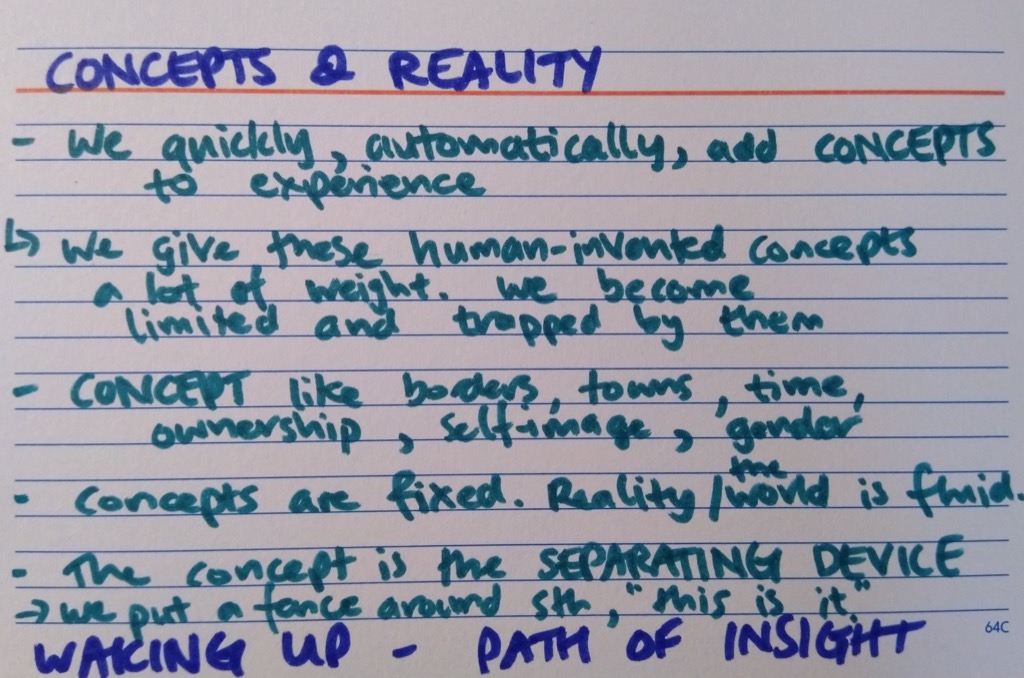 CONCEPTS & REALITY
- We quickly, automatically, add CONCEPTS
to experience
↳ We give these human-invented concepts
a lot of weight. We become
limited and trapped by them
- CONCEPT like borders, towns, time,
ownership, self-image, gender
the
- Concepts are fixed. Reality/world is fluid.
- The concept is the SEPARATING DEVICE
→ we put a fence around sth, "this is it"
64C
WAKING UP - PATH OF INSIGHT